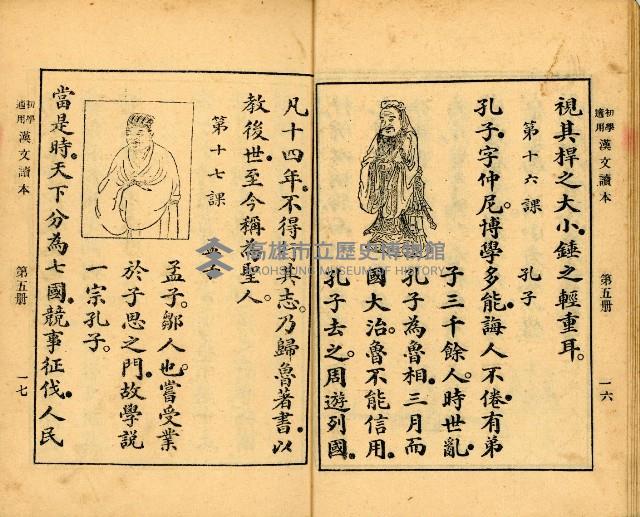 初學適用 漢文讀本 第五冊 一六
視其桿之大小。錘之輕重耳。
第十六課 孔子
孔子。字仲尼。博學多能。誨人不倦。有弟
子三千餘人。時世亂。
孔子為魯相。三月而
國大治。魯不能信用。
孔子去之。周遊列國。
凡十四年。不得行其志。乃歸魯著書。以
教後世。至今稱為聖人。
第十七課 孟子
孟子。鄒人也。嘗受業
於子思之門。故學說
一宗孔子。
當是時。天下分為七國。競事征伐。人民
初學適用 漢文讀本 第五冊 一七
高雄市立歷史博物館
KAOHSIUNG MUSEUM OF HISTORY